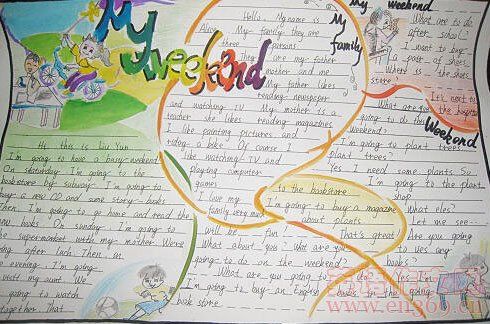 My weekend
Hi, this is Liu Yun
I'm going to have a busy weekend
On saturday I'm going to the
bookstore by subway. I'm going to
buy a new CD and some story-books
Then I'm going to go home and read the
new books. On sunday I'm going to
the supermarket with my mother. We're
going after lunch. Then in
the evening I'm going
visit my aunt. We
going to watch
together. That
will be fun!
What about you? What are you
going to do on the weekend?
My family
Hello. My name is
Alice. My family they are
three persons.
They are my father
mother and me
My father likes
reading newspaper
and watching TV. My mother is a
teacher she likes reading magazines
I like painting pictures and
riding a bike. Of course I
like watching TV and
playing computer
games
I love my
family very much
My weekend
What are to do
after school?
I want to buy
a post of shoes.
Where is the shoes
store?
It's next to
the hospital
Weekend
What are you
going to do this
weekend?
I'm going to plant trees
plant trees?
Yes I need some plants. So
I'm going to the plant
shop
To the bookstore
I'm going to buy a magazine
about plants
That's great
What eles?
Let me see
Are you going
books?
What are you going to do
Yes I'm
going to buy an English books in the
book store
www.en860.cn